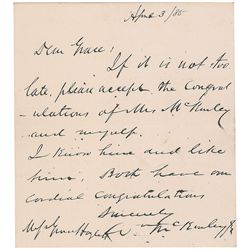 April 3/85
Dear Grace:
If it is not too
late, please accept the congrat
ulations of Mrs McKinley
and myself.
I know him and like
him. Both have our
cordial congratulations
Sincerely
Wm McKinley Jr